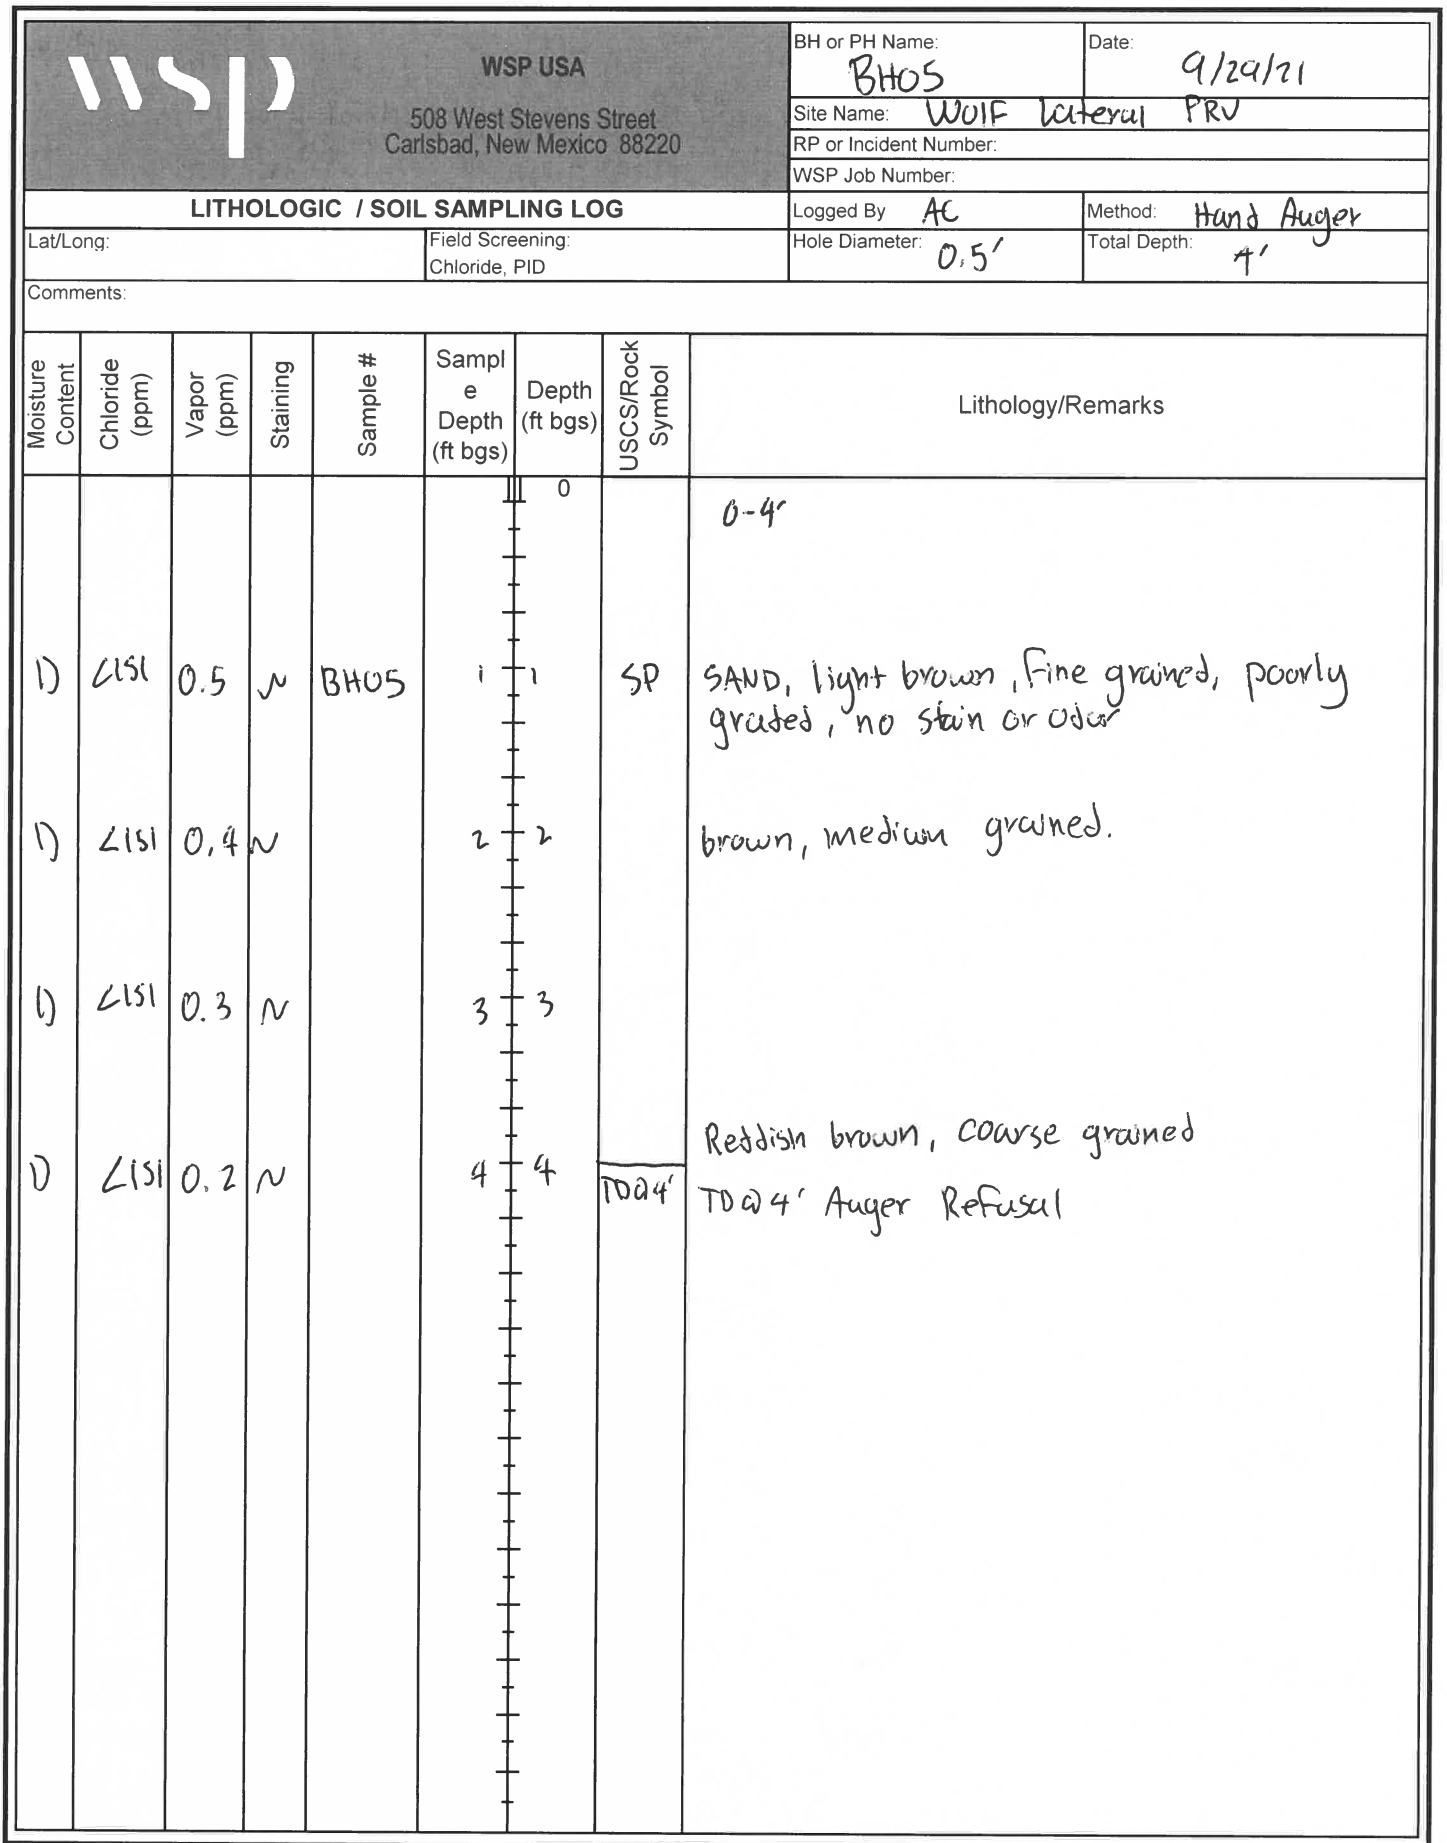 wsp
WSP USA
508 West Stevens Street
Carlsbad, New Mexico 88220
BH or PH Name: BH05
Date: 9/29/21
Site Name: Wolf Lateral PRV
RP or Incident Number:
WSP Job Number:
LITHOLOGIC / SOIL SAMPLING LOG
Logged By AC
Method: Hand Auger
Lat/Long:
Field Screening:
Chloride, PID
Hole Diameter: 0.5'
Total Depth: 4'
Comments:
Moisture Content
Chloride (ppm)
Vapor (ppm)
Staining
Sample #
Sampl
e
Depth
(ft bgs)
Depth
(ft bgs)
USCS/Rock Symbol
Lithology/Remarks
0
0-4'
D <151 0.5 N BH05 1 1 SP SAND, light brown, fine grained, poorly
graded, no stain or odor
D <151 0.4 N 2 2 brown, medium grained.
D <151 0.3 N 3 3
Reddish brown, coarse grained
D <151 0.2 N 4 4 TD@4' TD@4' Auger Refusal